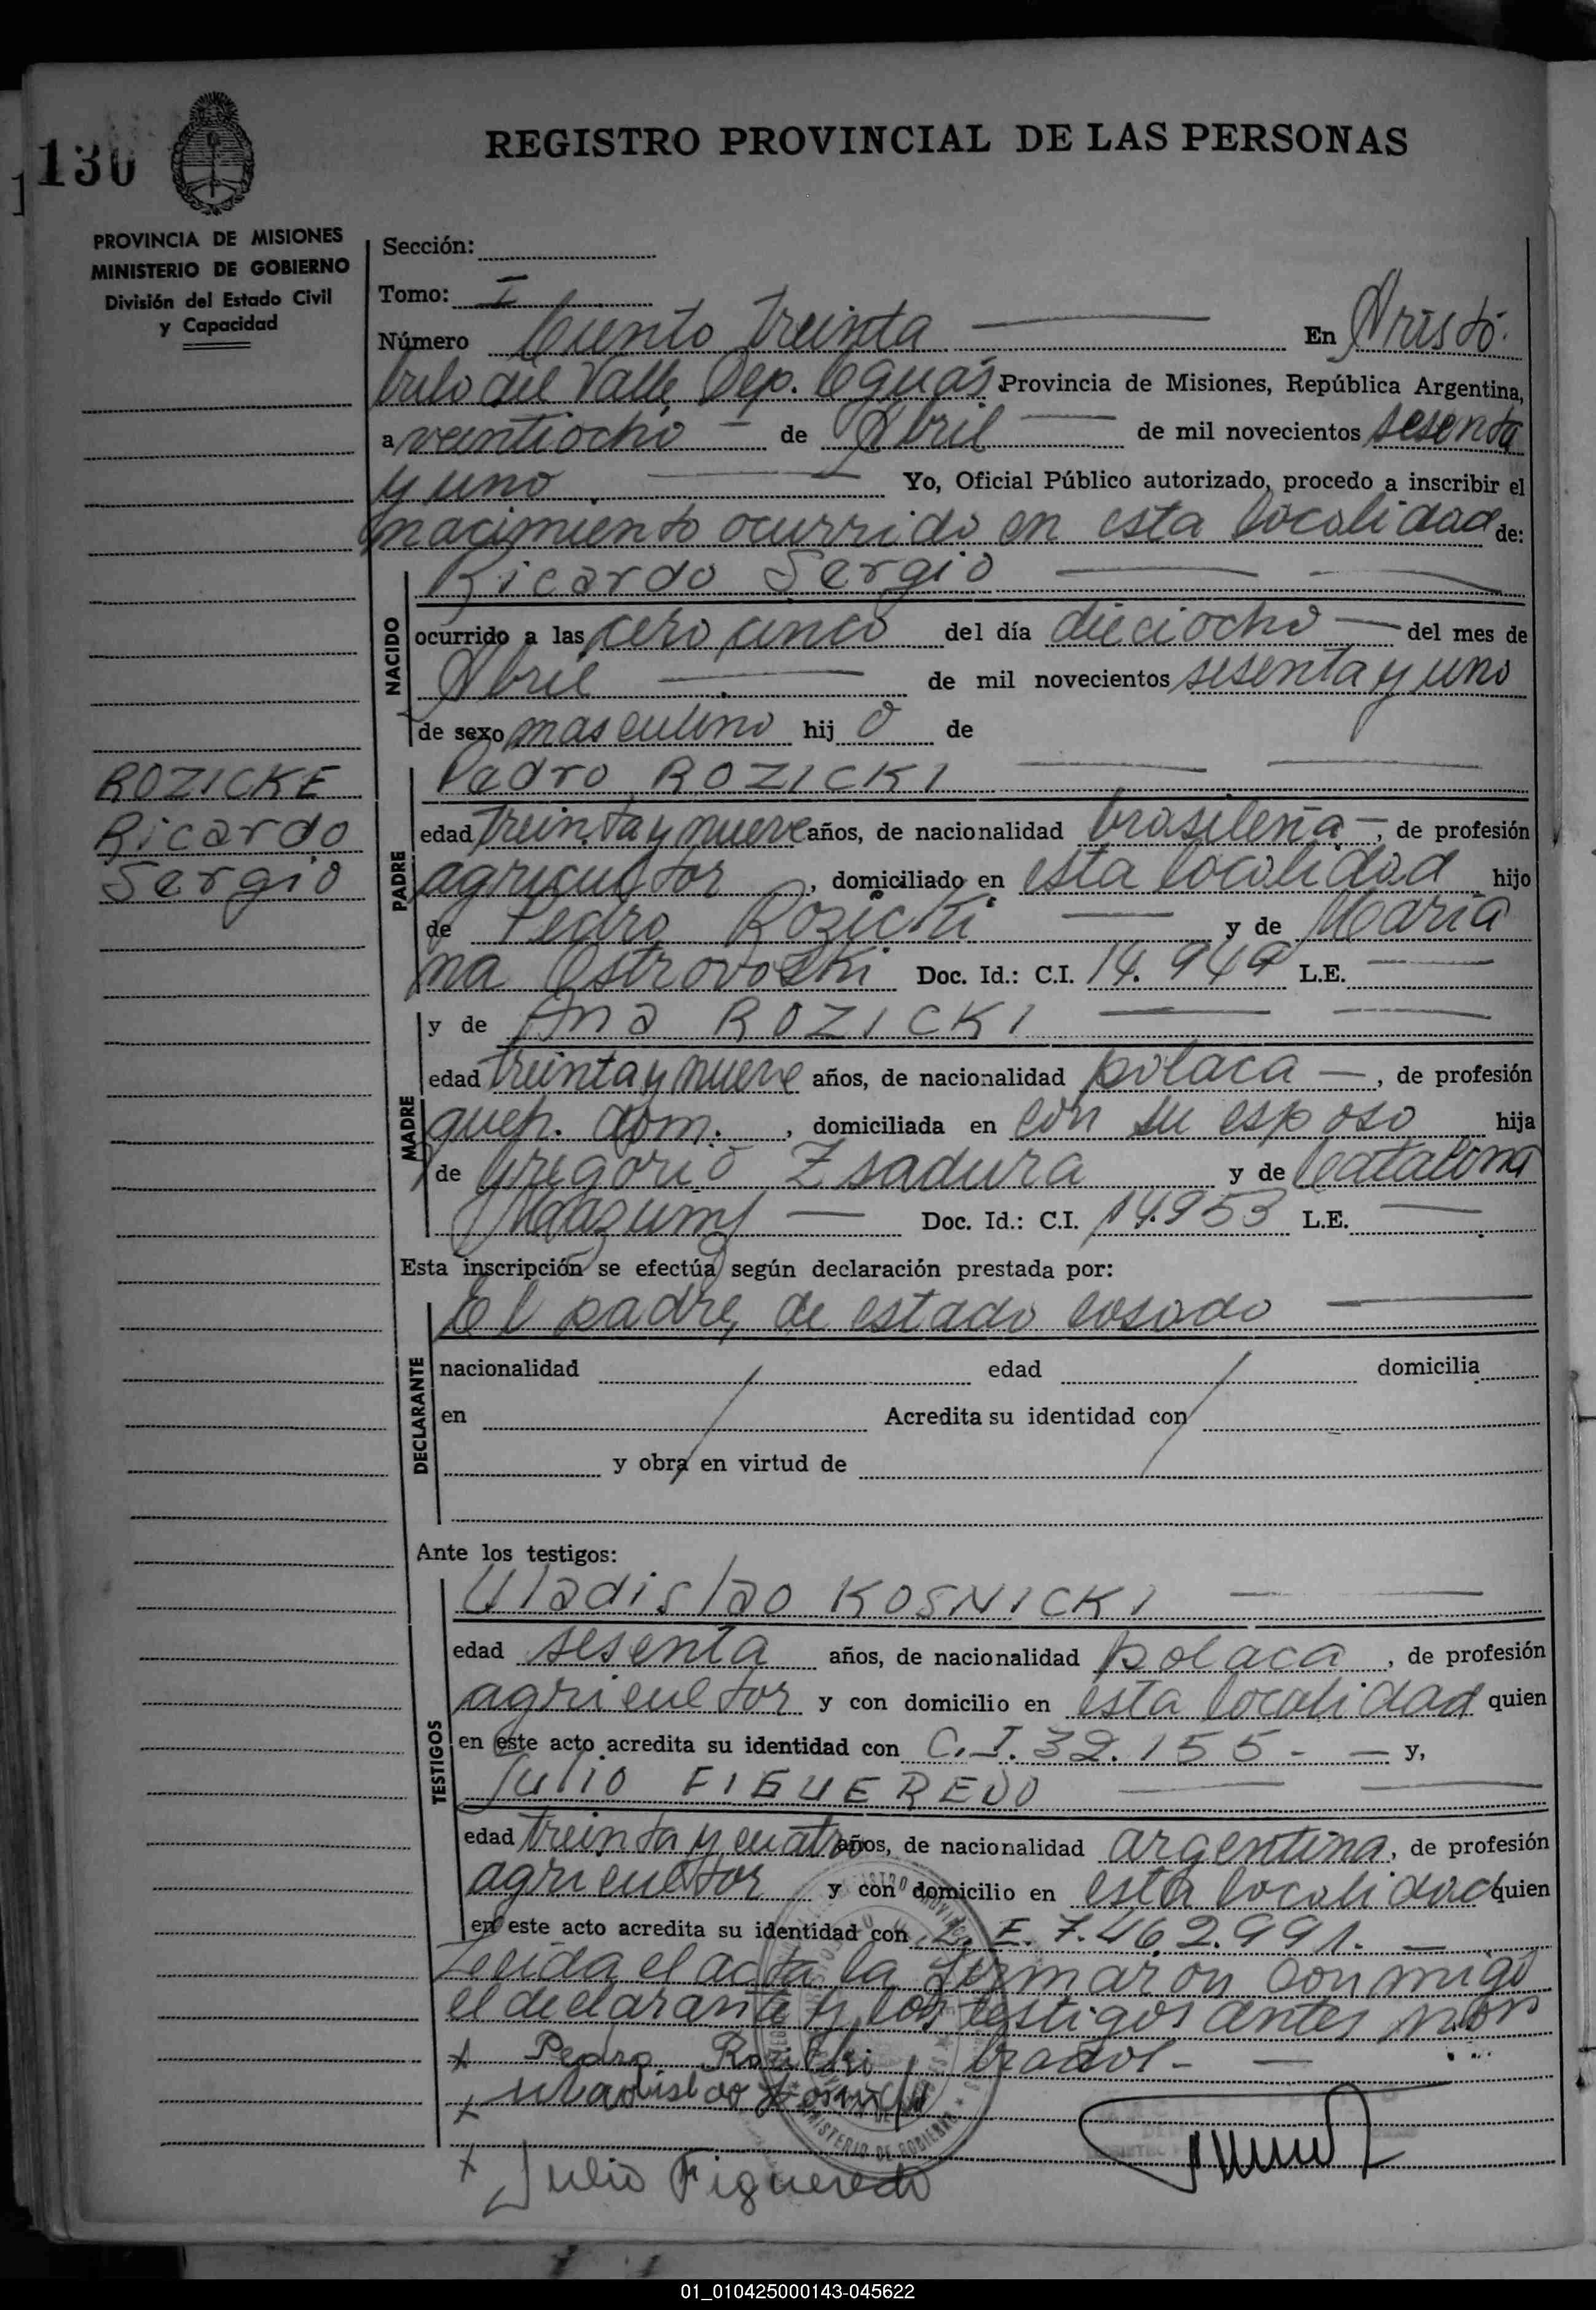 130
REGISTRO PROVINCIAL DE LAS PERSONAS
PROVINCIA DE MISIONES
MINISTERIO DE GOBIERNO
División del Estado Civil
y Capacidad
Sección:
Tomo: I
Número Ciento Treinta En Aristó-
bulo del Valle Dep. Cguás Provincia de Misiones, República Argentina,
a veintiocho de Abril de mil novecientos sesenta
y uno Yo, Oficial Público autorizado, procedo a inscribir el
nacimiento ocurrido en esta localidad de:
NACIDO
Ricardo Sergio
ocurrido a las cero cinco del día dieciocho del mes de
Abril de mil novecientos sesenta y uno
de sexo masculino hij o de
ROZICKE
Ricardo
Sergio
PADRE
Pedro ROZICKI
edad treinta y nueve años, de nacionalidad brasileña, de profesión
agricultor, domiciliado en esta localidad hijo
de Pedro Rozicki y de Maria
na Ostrovoski Doc. Id.: C.I. 14.949 L.E.
MADRE
y de Ana ROZICKI
edad treinta y nueve años, de nacionalidad polaca, de profesión
queh. dom., domiciliada en con su esposo hija
de Gregorio Zsadura y de Catalina
Doc. Id.: C.I. 14.953 L.E.
Esta inscripción se efectúa según declaración prestada por:
DECLARANTE
El padre, de estado casado
nacionalidad edad domicilia
en Acredita su identidad con
y obra en virtud de
Ante los testigos:
TESTIGOS
Uladislao KOSNICKI
edad sesenta años, de nacionalidad polaca, de profesión
agricultor y con domicilio en esta localidad quien
en este acto acredita su identidad con C.I. 32.155 - y,
Julio FIGUEREDO
edad treinta y cuatro años, de nacionalidad argentina, de profesión
agricultor y con domicilio en esta localidad quien
en este acto acredita su identidad con L.E. 7.462.991.
Leida el acta la firmaron conmigo
el declarante y los testigos antes nom
brados-
x Pedro Rozicki
x Uladislao Kosnicki
x Julio Figueredo
MINISTERIO DE GOBIERNO
01_010425000143-045622